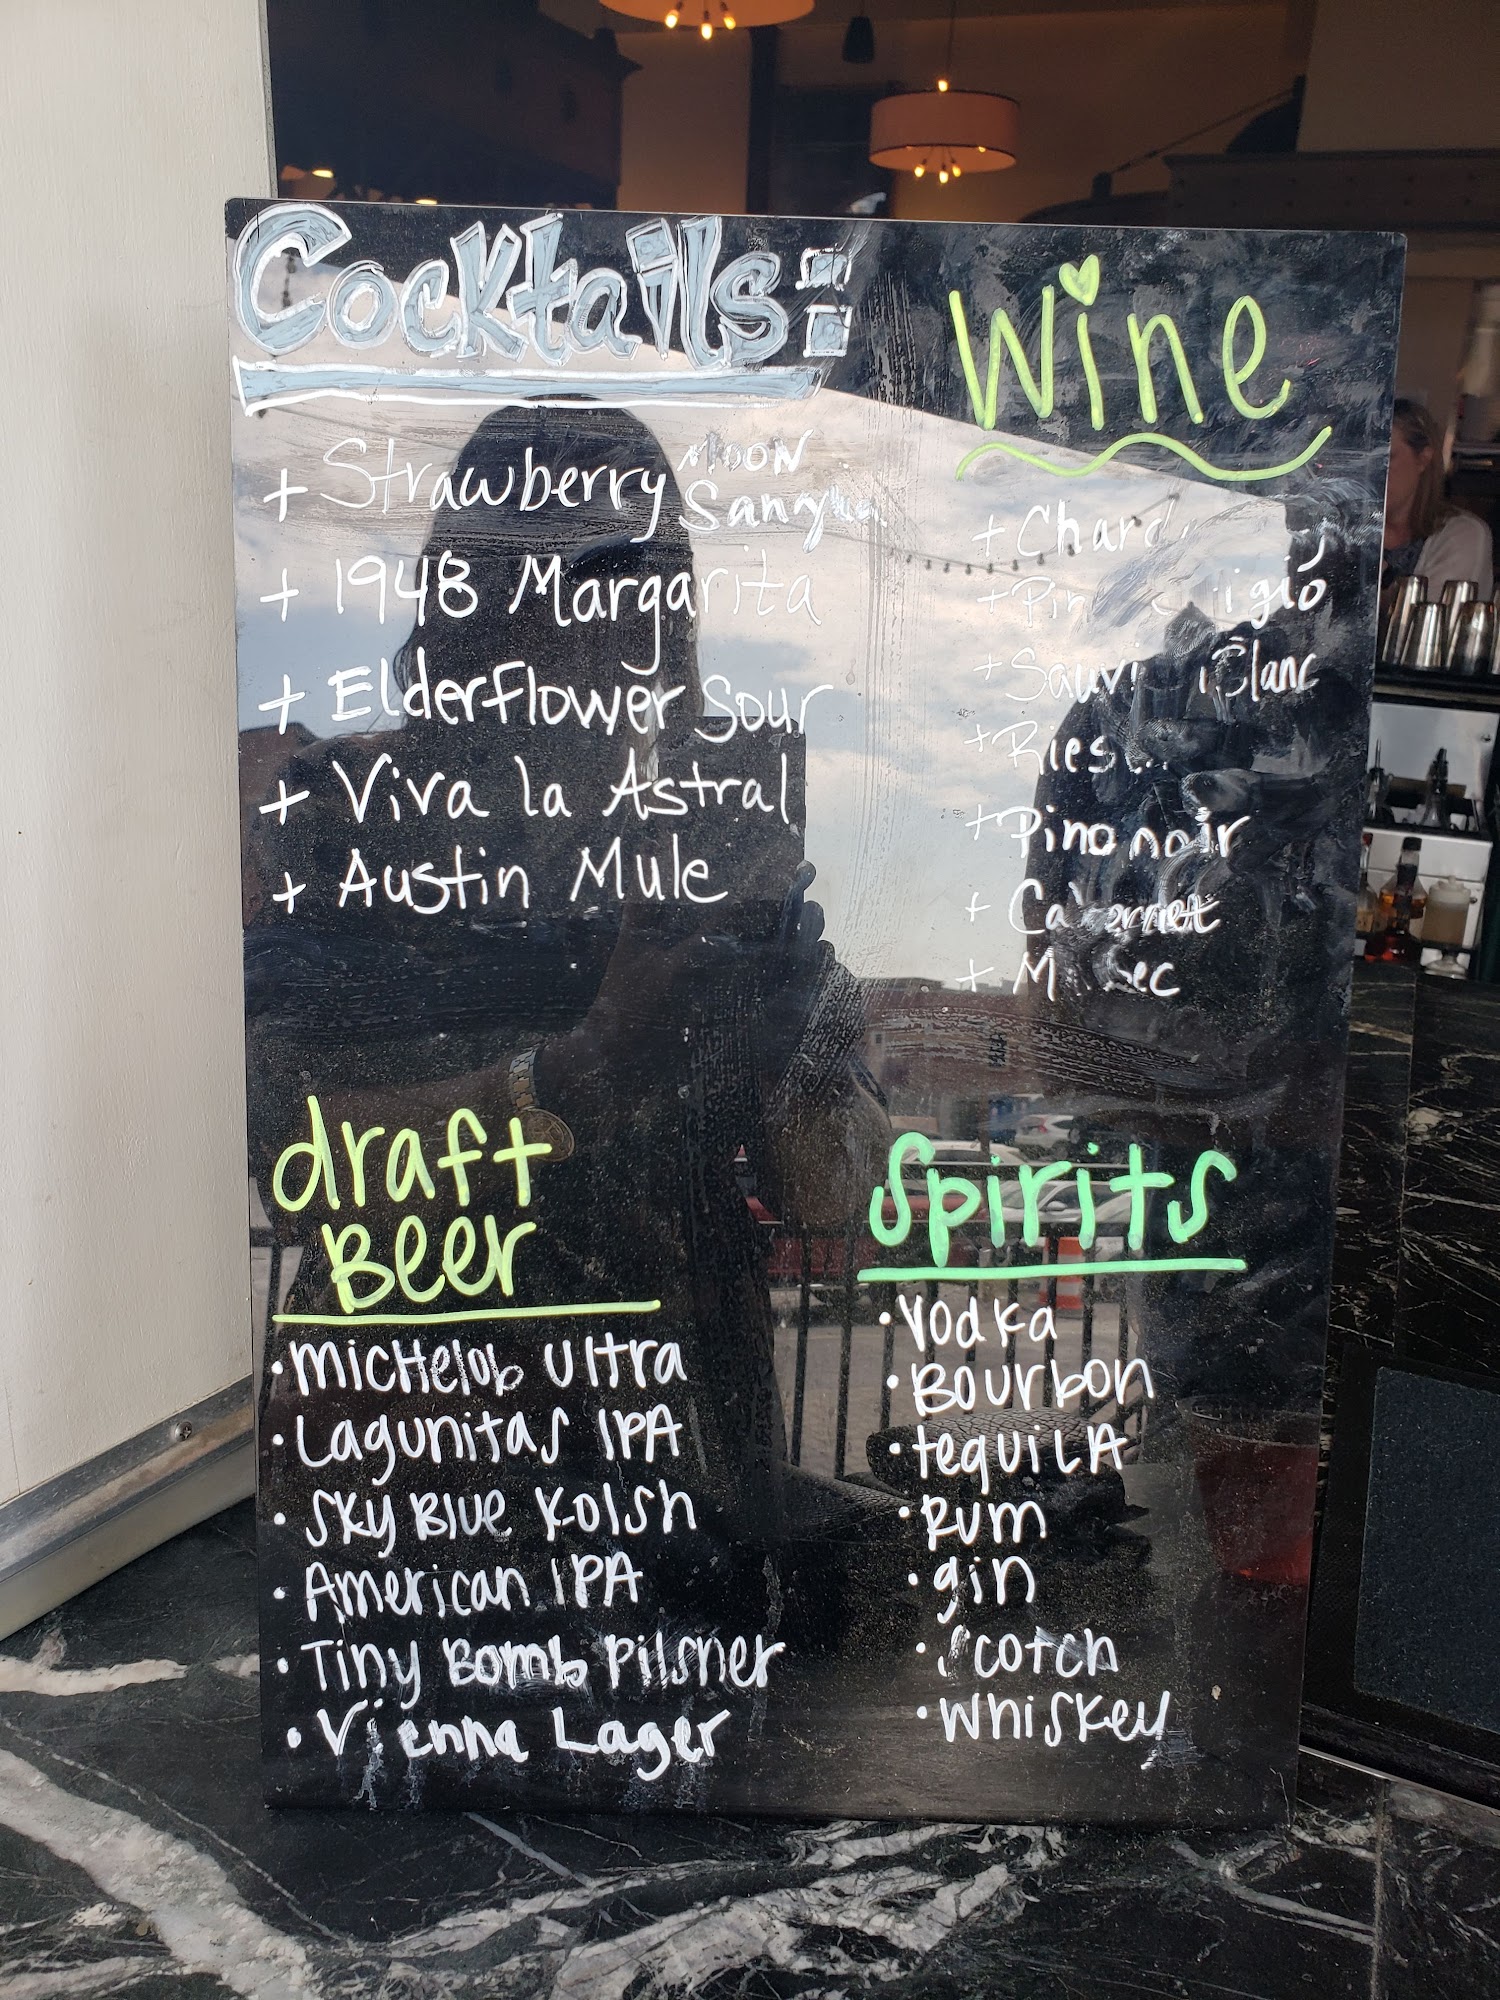 Cocktails:
+ Strawberry Moon
Sangria
+ 1948 Margarita
+ Elderflower Sour
+ Viva la Astral
+ Austin Mule
Wine
+ Chard
+ Pin igio
+ Sauvi Blanc
+ Ries
+ Pino noir
+ Cabernet
+ M ec
draft
Beer
• Michelob Ultra
• Lagunitas IPA
• Sky Blue Kolsh
• American IPA
• Tiny Bomb Pilsner
• Vienna Lager
Spirits
• Vodka
• Bourbon
• tequila
• Rum
• gin
• Scotch
• Whiskey